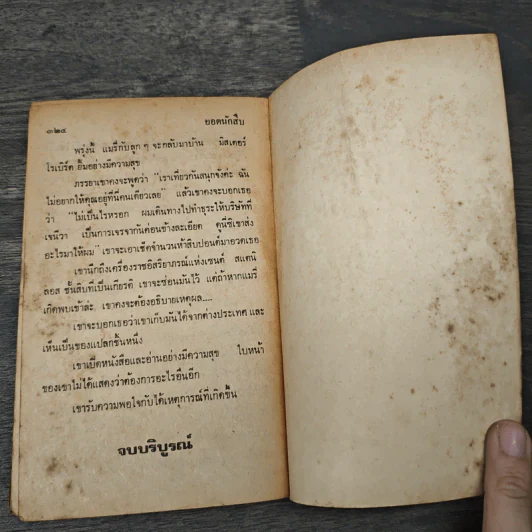 ๓๒๔ ยอดนักสืบ
พรุ่งนี้ แมรี่กับลูก ๆ จะกลับมาบ้าน มิสเตอร์
โรเบิร์ต ยิ้มอย่างมีความสุข
ภรรยาเขาคงจะพูดว่า "เราเที่ยวกันสนุกจังค่ะ ฉัน
ไม่อยากให้คุณอยู่ที่นี่คนเดียวเลย" แล้วเขาคงจะบอกเธอ
ว่า "ไม่เป็นไรหรอก ผมเดินทางไปทำธุระให้บริษัทที่
เจนีวา เป็นการเจรจากันค่อนข้างละเอียด ดูนี่ซิเขาส่ง
อะไรมาให้ผม" เขาจะเอาเช็คจำนวนห้าสิบปอนด์มาอวดเธอ
เขานึกถึงเครื่องราชอิสริยาภรณ์แห่งเซนต์ สแตนิ
ลอส ชั้นสิบที่เป็นเกียรติ เขาจะซ่อนมันไว้ แต่ถ้าหากแมรี่
เกิดพบเข้าล่ะ เขาคงจะต้องอธิบายเหตุผล....
เขาจะบอกเธอว่าเขาเก็บมันได้จากต่างประเทศ และ
เห็นเป็นของแปลกชิ้นหนึ่ง
เขาเปิดหนังสือและอ่านอย่างมีความสุข ใบหน้า
ของเขาไม่ได้แสดงว่าต้องการอะไรอื่นอีก
เขารับความพอใจกับได้เหตุการณ์ที่เกิดขึ้น
จบบริบูรณ์